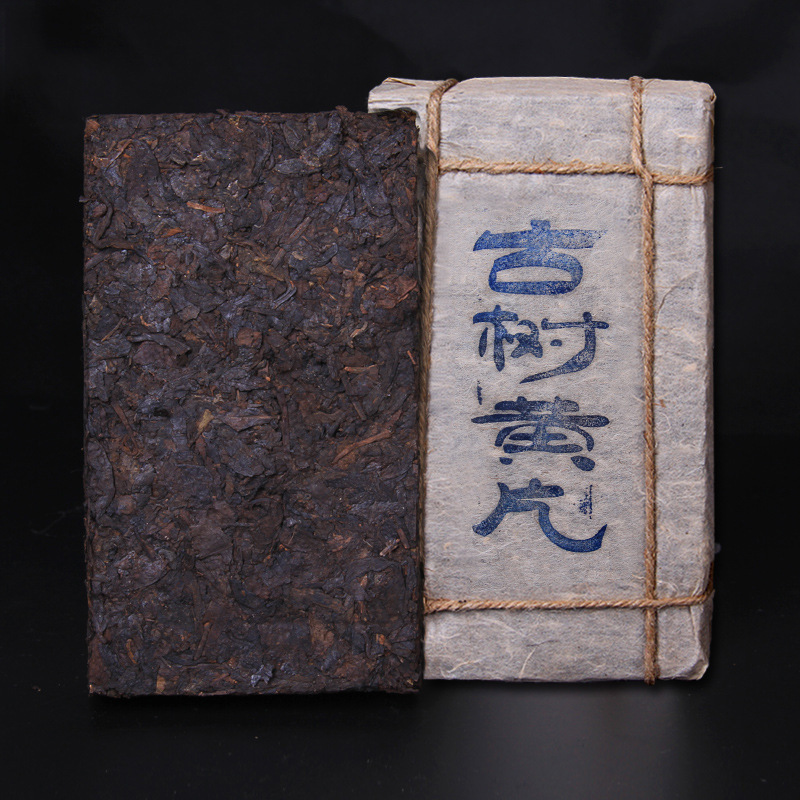 古
树
黄
片